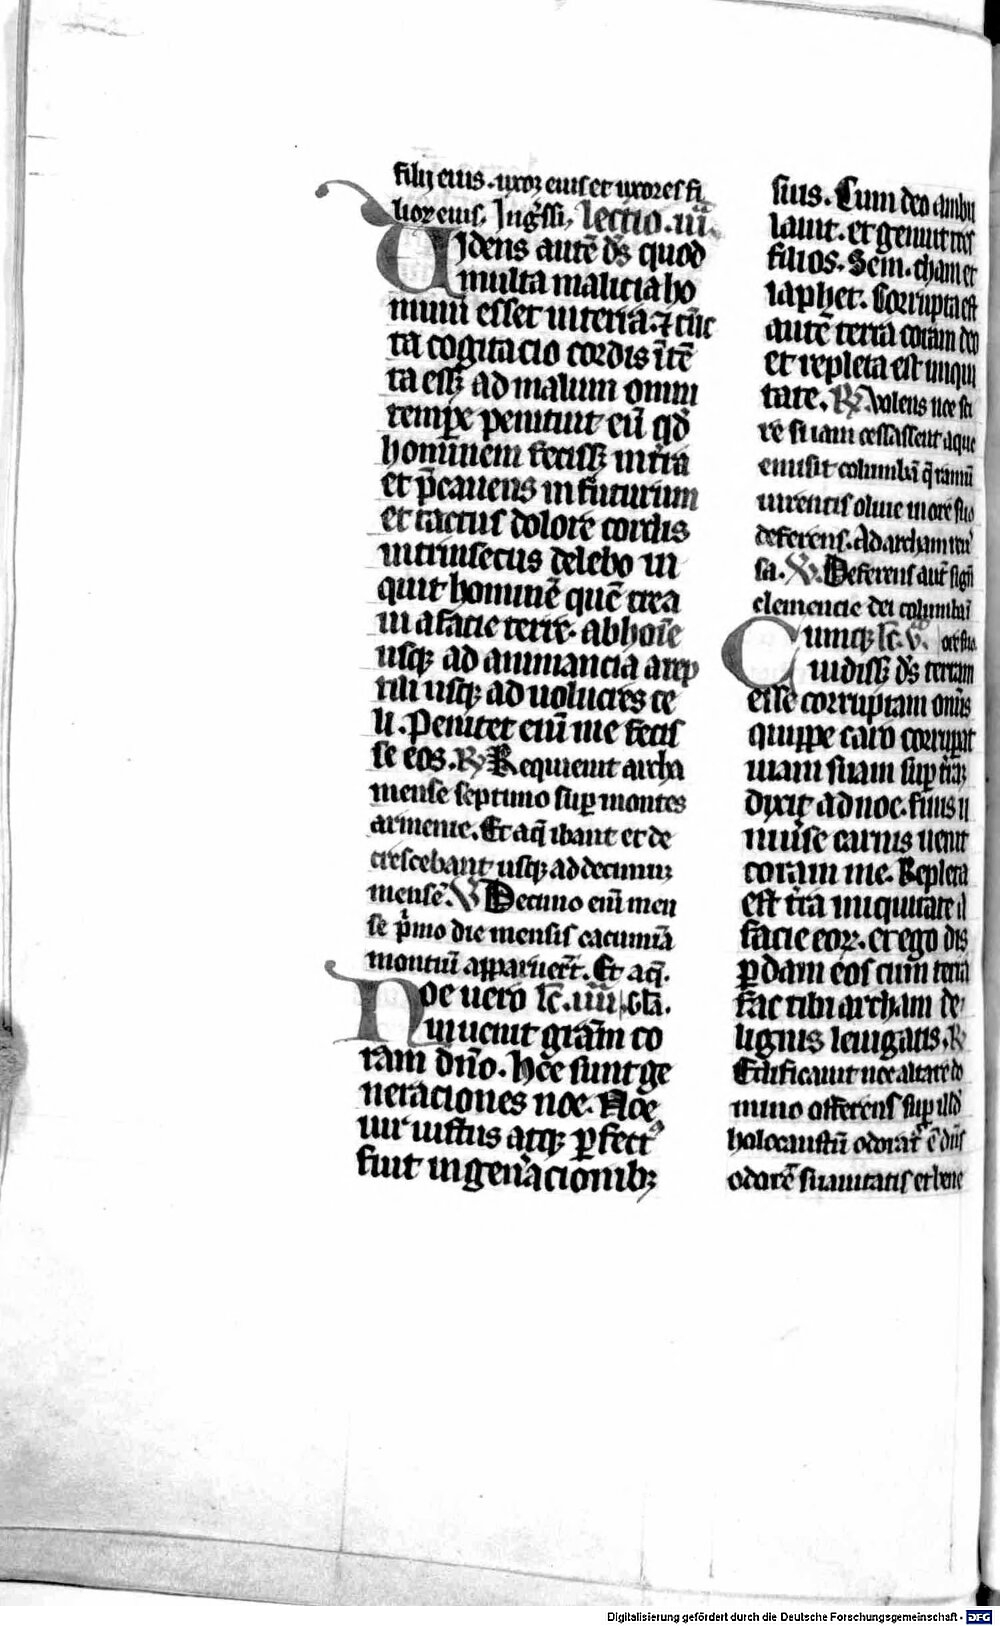 filij eius. uxor eius et uxores fi
lioꝝ eius. Ingͬssi, lectio .iii.
Uidens autē dꝰ quod
multa malicia ho
minū esset in terra ⁊ cūc
ta cogitacio cordis ītē
ta essꝫ ad malum omni
tempe penituit eū qd̓
hominem fecissꝫ in tr̄a
et p̄cauens in futurum
et tactus dolore cordis
intrinsecus delebo in
quit hominē quē crea
ui a facie terre. ab hoīe
usqꝫ ad animancia a rep
tili usqꝫ ad uolucres ce
li. Penitet enī me fecis
se eos. ℟ Requieuit archa
mense septimo sup montes
armenie. Et aq̄ ibant et de
crescebant usqꝫ ad decimū
mensē. ℣ Decimo enī men
se p̍mo die mensis cacumīa
montiū apparuer̄t. Et aq̄.
Noe uero lc̄. iiii. Gła.
inuenit grām̄ co
ram dn̄o. Hee sunt ge
neraciones noe. Noe
uir iustus atqꝫ ꝑfectꝰ
fuit in gen̄acionibꝫ
suis. Cum deo ambu
lauit. et genuit tres
filios. Sem. cham et
iaphet. Corrupta est
autē terra coram deo
et repleta est iniqui
tate. ℟ Volens noe sci
re si iam cessassent aque
emisit columbā q̄ ramū
uirentis oliue in ore suo
deferens. Ad archam reū
sa. ℣ Deferens aut̄ signū
clemencie dei columba
Cumqꝫ lc̄. v. ore suo
uidissꝫ dꝰ terram
esse corruptam omīs
quippe caro corrupat
uiam suam sup tr̄aꝫ
dixit ad noe. finis u
niu̓se carnis uenit
coram me. Repleta
est tr̄a iniquitate a
facie eoꝝ. et ego dis
ꝑdam eos cum terra
fac tibi archam de
lignis leuigatis. ℟
Edificauit noe altare do
mino offerens sup illd̓
holocaustū odorat̄ ē dn̄s
odorē suauitatis et bene
Digitalisierung gefördert durch die Deutsche Forschungsgemeinschaft - DFG